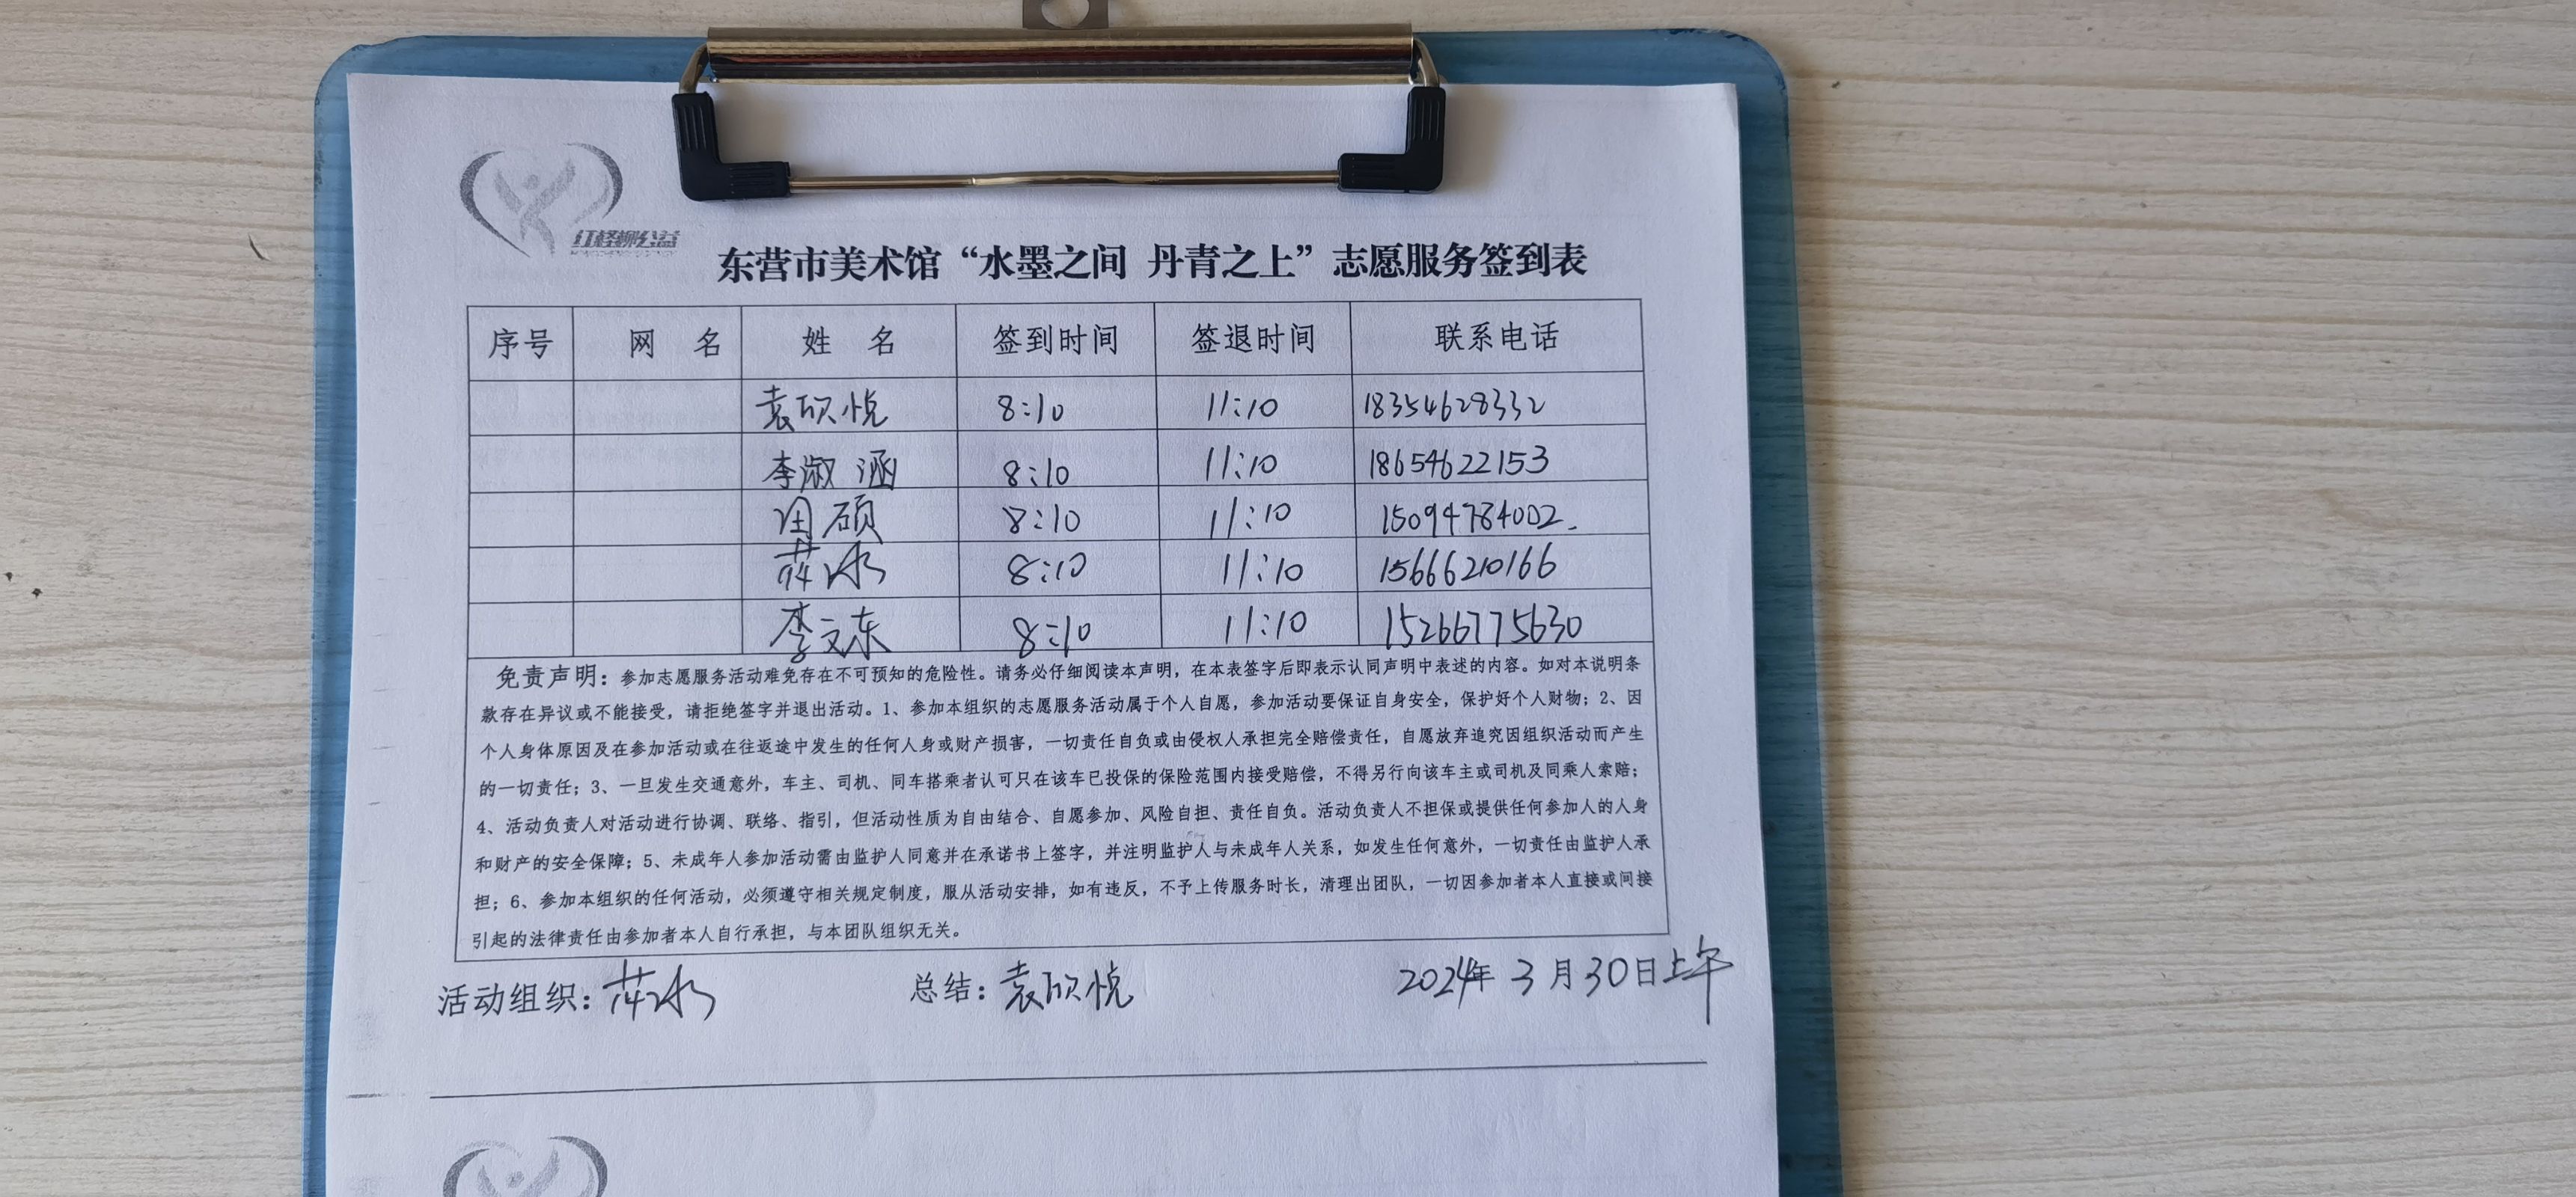 红柽柳公益
东营市美术馆“水墨之间 丹青之上”志愿服务签到表
序号 网 名 姓 名 签到时间 签退时间 联系电话
袁欣悦 8:10 11:10 18354628332
李淑涵 8:10 11:10 18654622153
田硕 8:10 11:10 15094784002.
8:10 11:10 15666210166
李文东 8:10 11:10 15266775630
免责声明：参加志愿服务活动难免存在不可预知的危险性。请务必仔细阅读本声明，在本表签字后即表示认同声明中表述的内容。如对本说明条
款存在异议或不能接受，请拒绝签字并退出活动。1、参加本组织的志愿服务活动属于个人自愿，参加活动要保证自身安全，保护好个人财物；2、因
个人身体原因及在参加活动或在往返途中发生的任何人身或财产损害，一切责任自负或由侵权人承担完全赔偿责任，自愿放弃追究因组织活动而产生
的一切责任；3、一旦发生交通意外，车主、司机、同车搭乘者认可只在该车已投保的保险范围内接受赔偿，不得另行向该车主或司机及同乘人索赔；
4、活动负责人对活动进行协调、联络、指引，但活动性质为自由结合、自愿参加、风险自担、责任自负。活动负责人不担保或提供任何参加人的人身
和财产的安全保障；5、未成年人参加活动需由监护人同意并在承诺书上签字，并注明监护人与未成年人关系，如发生任何意外，一切责任由监护人承
担；6、参加本组织的任何活动，必须遵守相关规定制度，服从活动安排，如有违反，不予上传服务时长，清理出团队，一切因参加者本人直接或间接
引起的法律责任由参加者本人自行承担，与本团队组织无关。
活动组织： 总结：袁欣悦 2024年 3月30日上午